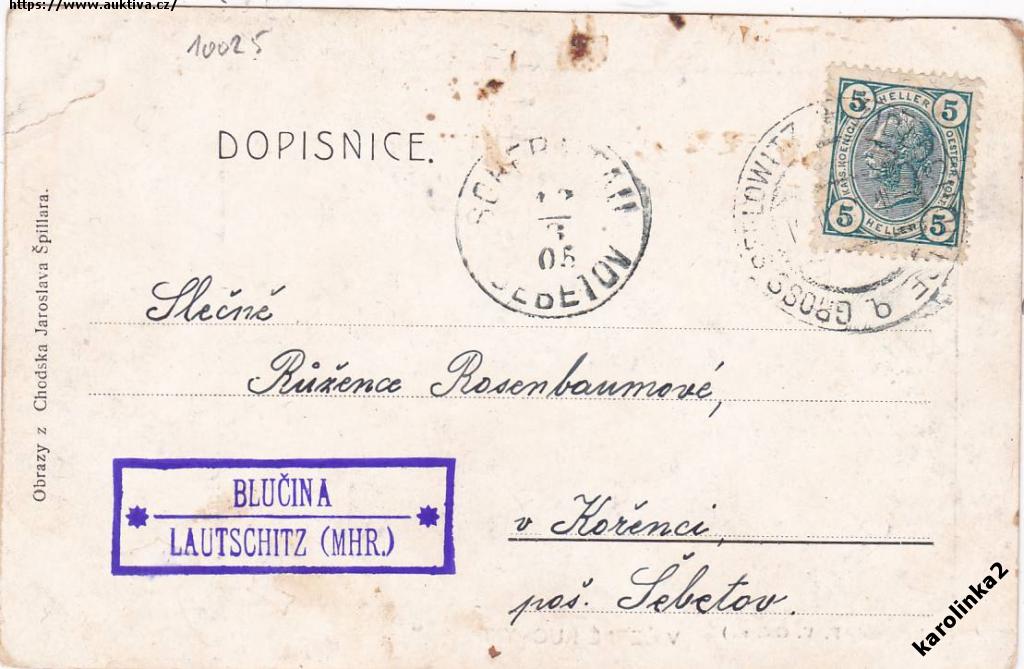 https://www.auktiva.cz/
10025
DOPISNICE.
Obrazy z Chodska Jaroslava Špillara.
5 HELLER 5
5 HELLER 5
ŠEBETOV
12
3
05
GROSS SEELOWITZ
Slečně
Růžence Rosenbaumové,
BLUČINA
LAUTSCHITZ (MHR.)
v Kořenci,
poš. Šebetov.
karolinka2